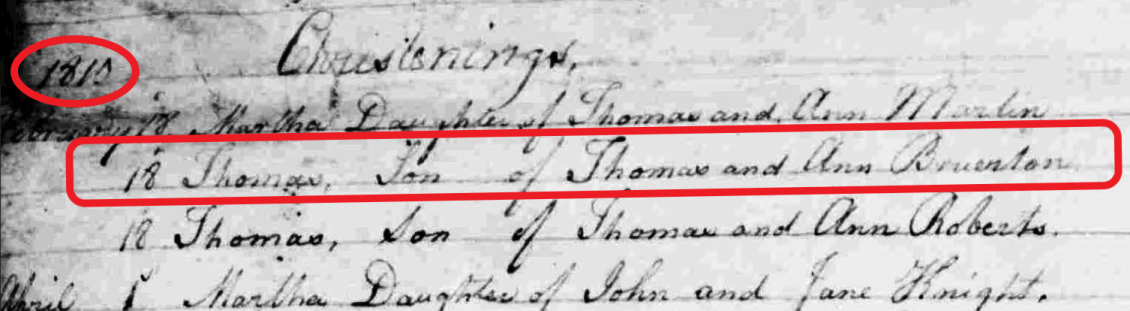 1810 Christenings,
February 18 Martha Daughter of Thomas and Ann Martin
18 Thomas, Son of Thomas and Ann Bruerton
18 Thomas, Son of Thomas and Ann Roberts.
April 1 Martha Daughter of John and Jane Knight.